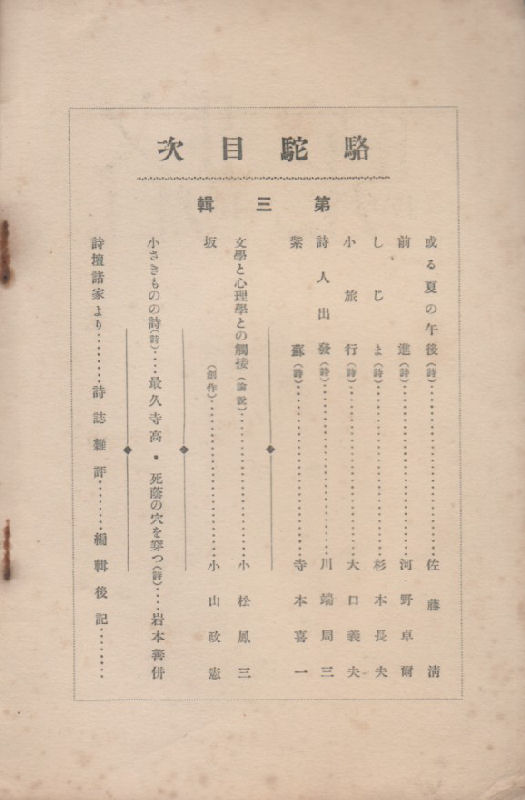 駱駝目次
第三輯
或る夏の午後(詩)……………佐藤清
前進(詩)……………河野卓爾
しじま(詩)……………杉本長夫
小旅行(詩)……………大口義夫
詩人出發(詩)……………川端周三
紫蘇(詩)……………寺本喜一
文學と心理學との觸接(論説)……………小松鳳三
坂(創作)……………小山政憲
小さきものの詩(詩)……最久寺高・死蔭の穴を穿つ(詩)……岩本善併
詩壇諸家より………詩誌雜評………編輯後記………